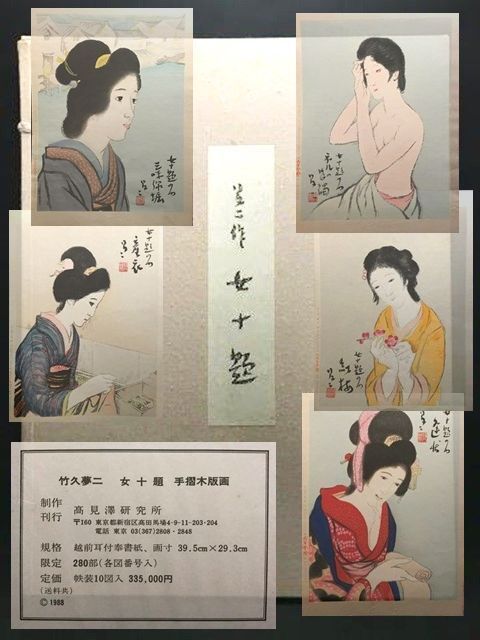 夢二作 女十題
女十題乃
三味線堀
女十題乃
産衣
夢二
女十題乃
ネルの感触
女十題乃
紅梅
夢二
竹久夢二 女十題 手摺木版画
制作
刊行 高見澤研究所
〒160 東京都新宿区高田馬場4-9-11-203・204
電話 東京 03(367)2808・2848
規格 越前耳付奉書紙、画寸 39.5cm×29.3cm
限定 280部(各図番号入)
定価 帙装10図入 335,000円
(送料共)
©1988